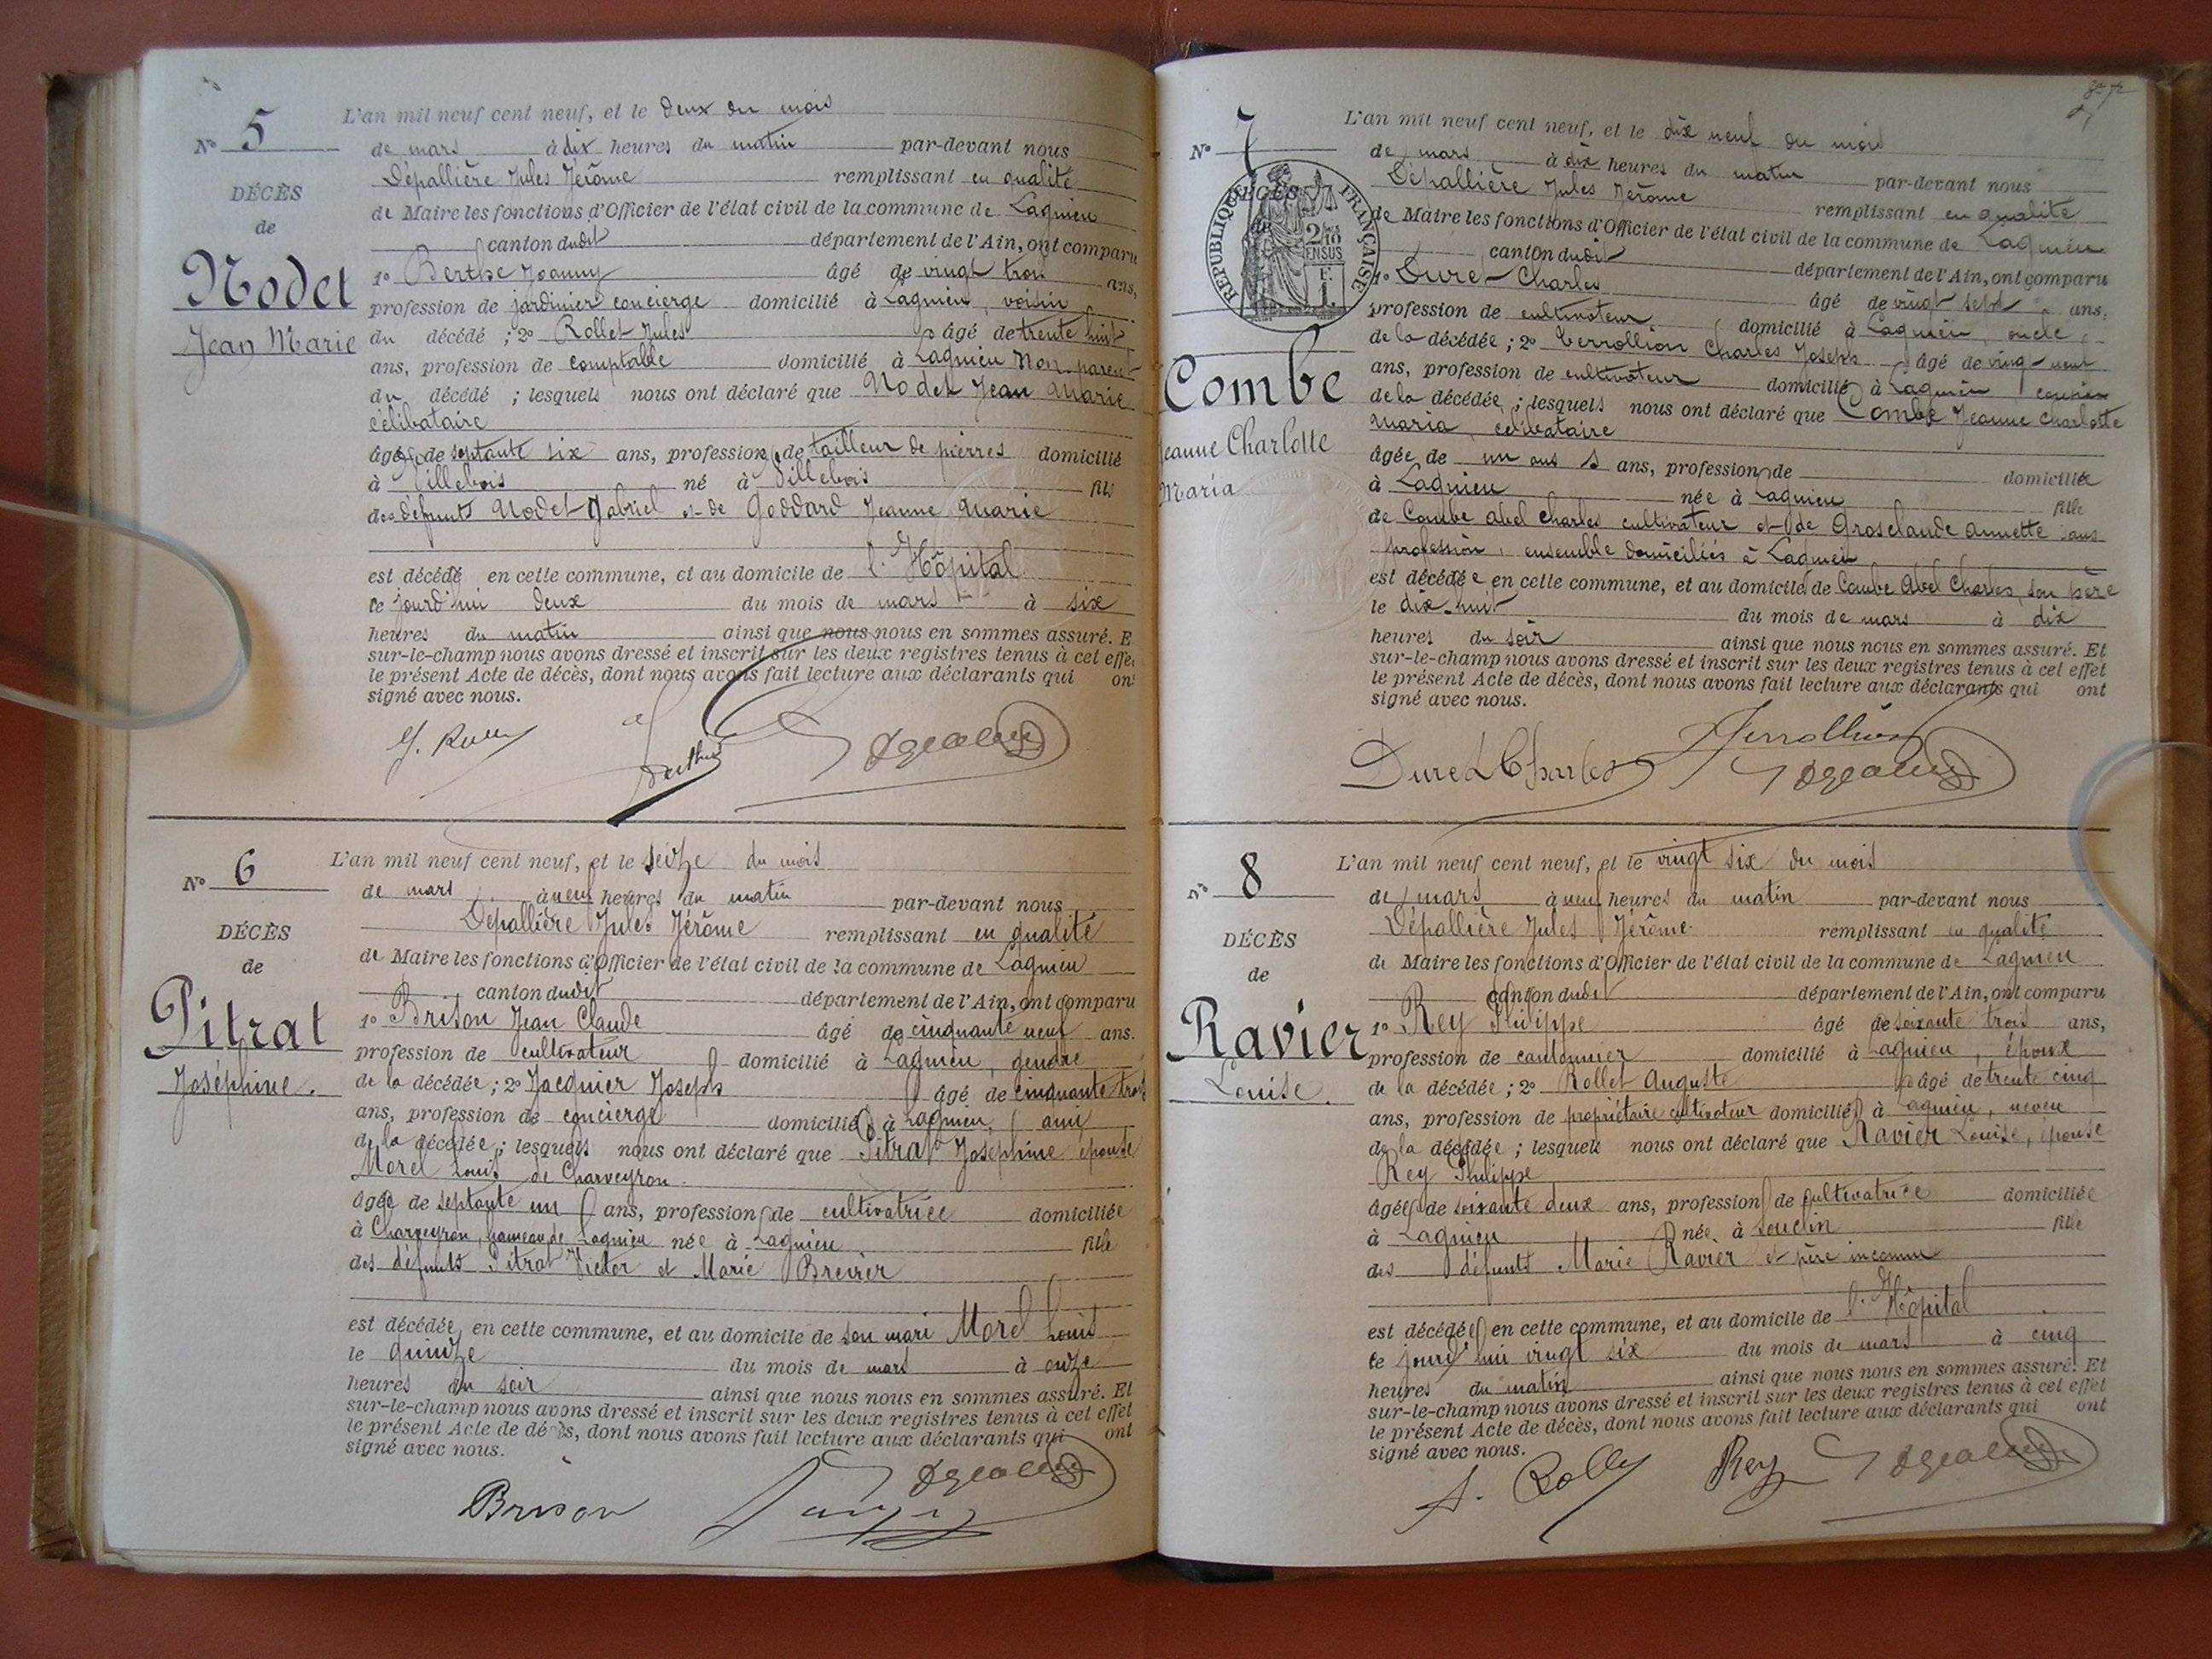 N° 5
DÉCÈS
de
Nodet
Jean Marie
L'an mil neuf cent neuf, et le deux du mois
de mars à dix heures du matin par-devant nous
Dépallière Jules Jérôme remplissant en qualité
de Maire les fonctions d'Officier de l'état civil de la commune de Lagnieu
canton dudit département de l'Ain, ont comparu
1° Berthe Joanny âgé de vingt trois ans,
profession de jardinier concierge domicilié à Lagnieu, voisin
du décédé ; 2° Rollet Jules âgé de trente huit
ans, profession de comptable domicilié à Lagnieu non parent
du décédé ; lesquels nous ont déclaré que Nodet Jean Marie
célibataire
âgé de septante six ans, profession de tailleur de pierres domicilié
à Villebois né à Villebois fils
des défunts Nodet Gabriel et de Goddard Jeanne Marie
est décédé en cette commune, et au domicile de l'Hôpital
le jourd'hui deux du mois de mars à six
heures du matin ainsi que nous nous en sommes assuré. E
sur-le-champ nous avons dressé et inscrit sur les deux registres tenus à cet effet
le présent Acte de décès, dont nous avons fait lecture aux déclarants qui ont
signé avec nous.
Berthe
N° 6
DÉCÈS
de
Pitrat
Joséphine.
L'an mil neuf cent neuf, et le seize du mois
de mars à neuf heures du matin par-devant nous
Dépallière Jules Jérôme remplissant en qualité
de Maire les fonctions d'Officier de l'état civil de la commune de Lagnieu
canton dudit département de l'Ain, ont comparu
1° Brison Jean Claude âgé de cinquante neuf ans.
profession de cultivateur domicilié à Lagnieu, gendre
de la décédée ; 2° Jacquier Joseph âgé de cinquante trois
ans, profession de concierge domicilié à Lagnieu, ami
de la décédée ; lesquels nous ont déclaré que Pitrat Joséphine épouse
Morel Louis de Charveyron.
âgée de septante un ans, profession de cultivatrice domiciliée
à Charveyron, hameau de Lagnieu née à Lagnieu fille
des défunts Pitrat Victor et Marie Brevier
est décédée en cette commune, et au domicile de son mari Morel Louis
le quinze du mois de mars à onze
heures du soir ainsi que nous nous en sommes assuré. Et
sur-le-champ nous avons dressé et inscrit sur les deux registres tenus à cet effet
le présent Acte de décès, dont nous avons fait lecture aux déclarants qui ont
signé avec nous.
Brison
7
N° 7
DÉCÈS
de
RÉPUBLIQUE FRANÇAISE
2/10 EN SUS
1 F.
Combe
Jeanne Charlotte
Maria
L'an mil neuf cent neuf, et le dix neuf du mois
de mars à dix heures du matin par-devant nous
Dépallière Jules Jérôme remplissant en qualité
de Maire les fonctions d'Officier de l'état civil de la commune de Lagnieu
canton dudit département de l'Ain, ont comparu
1° Duret Charles âgé de vingt sept ans,
profession de cultivateur domicilié à Lagnieu, oncle
de la décédée ; 2° Verrollion Charles Joseph âgé de vingt neuf
ans, profession de cultivateur domicilié à Lagnieu cousin
de la décédée ; lesquels nous ont déclaré que Combe Jeanne Charlotte
Maria, célibataire
âgée de un ans, profession de domiciliée
à Lagnieu née à Lagnieu fille
de Combe Abel Charles cultivateur et de Groselaude Annette sans
profession, ensemble domiciliés à Lagnieu
est décédée en cette commune, et au domicile de Combe Abel Charles, son père
le dix-huit du mois de mars à dix
heures du soir ainsi que nous nous en sommes assuré. Et
sur-le-champ nous avons dressé et inscrit sur les deux registres tenus à cet effet
le présent Acte de décès, dont nous avons fait lecture aux déclarants qui ont
signé avec nous.
Duret Charles
N° 8
DÉCÈS
de
Ravier
Louise.
L'an mil neuf cent neuf, et le vingt six du mois
de mars à neuf heures du matin par-devant nous
Dépallière Jules Jérôme remplissant en qualité
de Maire les fonctions d'Officier de l'état civil de la commune de Lagnieu
canton dudit département de l'Ain, ont comparu
1° Rey Philippe âgé de soixante trois ans,
profession de cantonnier domicilié à Lagnieu, époux
de la décédée ; 2° Rollet Auguste âgé de trente cinq
ans, profession de propriétaire cultivateur domicilié à Lagnieu, neveu
de la décédée ; lesquels nous ont déclaré que Ravier Louise, épouse
Rey Philippe
âgée de soixante deux ans, profession de cultivatrice domiciliée
à Lagnieu née à Souclin fille
des défunts Marie Ravier et père inconnu
est décédée en cette commune, et au domicile de l'Hôpital
le jourd'hui vingt six du mois de mars à cinq
heures du matin ainsi que nous nous en sommes assuré. Et
sur-le-champ nous avons dressé et inscrit sur les deux registres tenus à cet effet
le présent Acte de décès, dont nous avons fait lecture aux déclarants qui ont
signé avec nous.
Rey